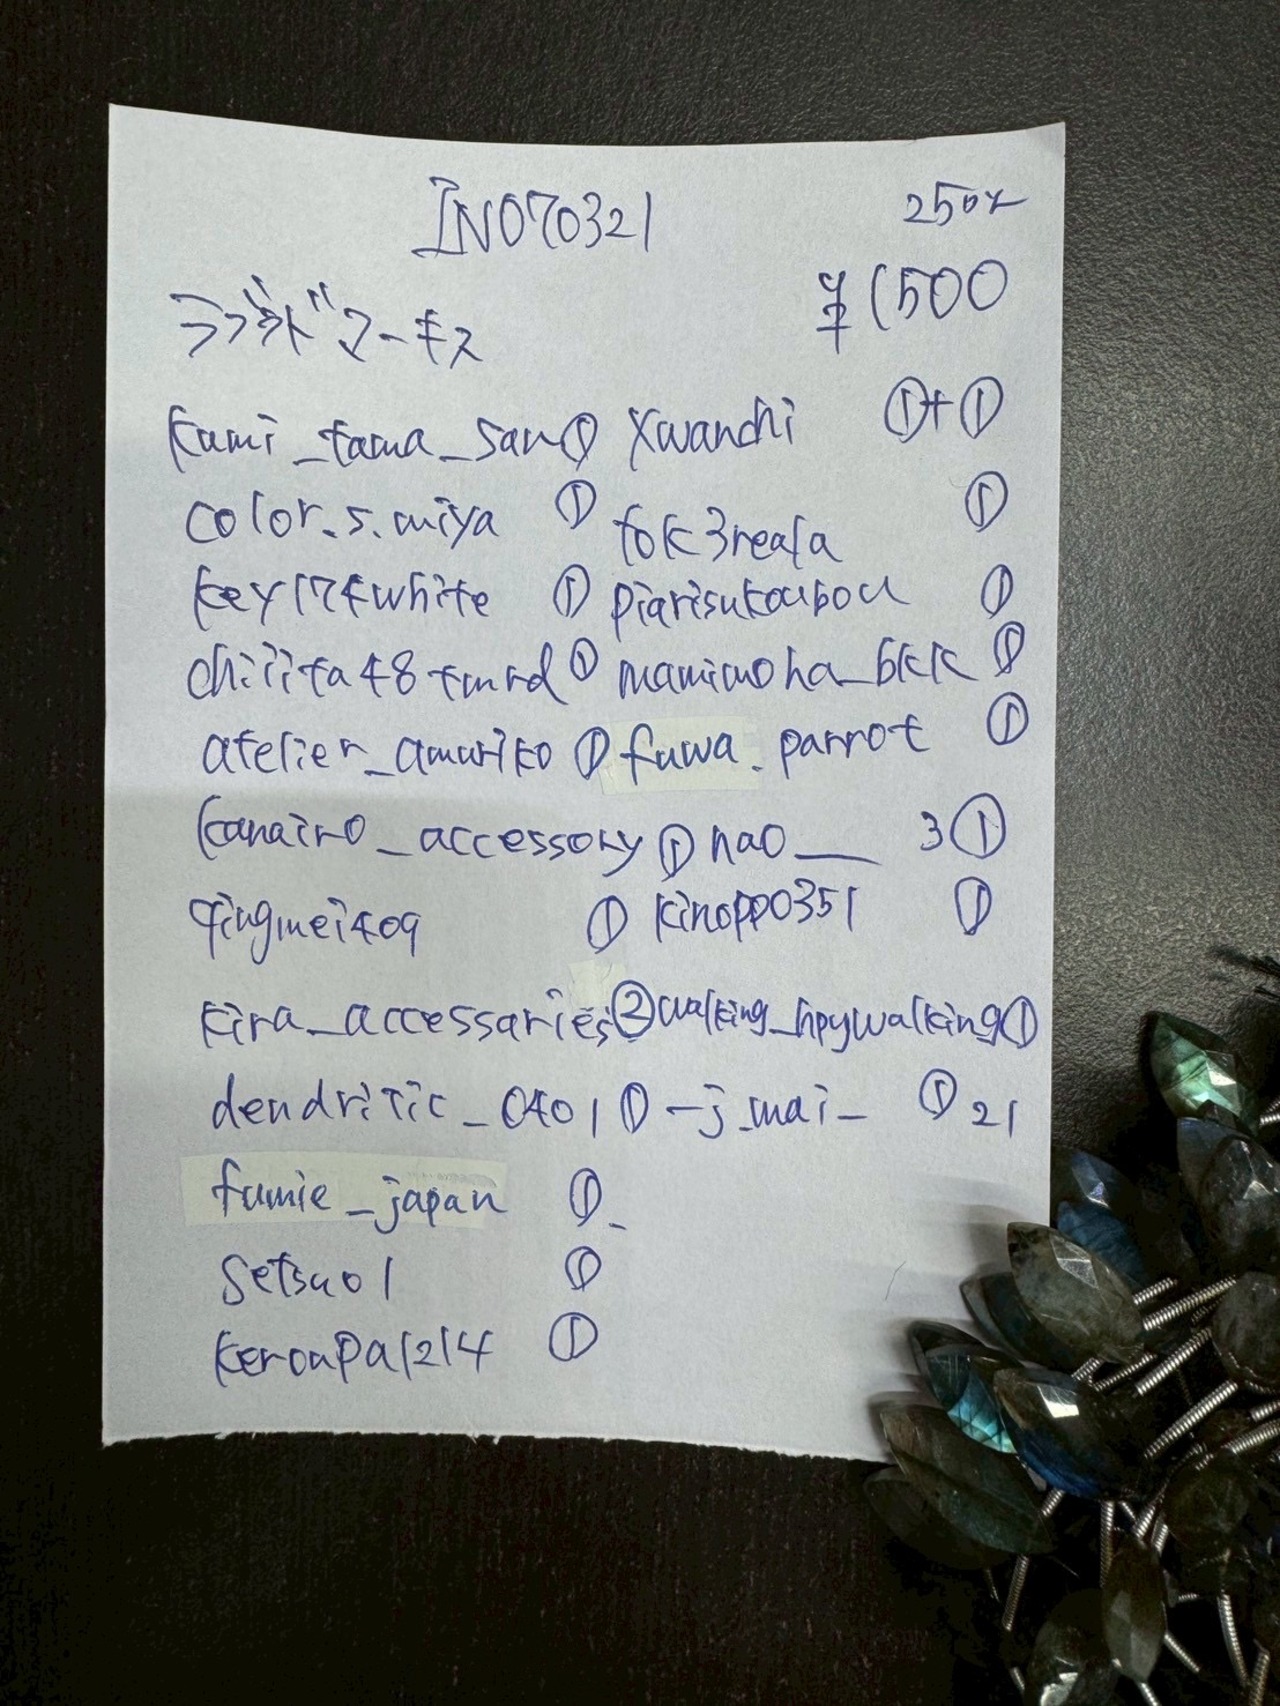 INO70321 250%
ラブラドマーキス ¥1500
kumi_tama_san① xwanchi ①+①
color.s.miya ① fok3reala ①
key174white ① piarisukoubou ①
chiiita48tmrd ① mamimoha_bkk ①
atelier_amuriko ① fuwa.parrot ①
kanairo_accessory ① nao___ 3①
qingmei409 ① kinopp0351 ①
kira_accessaries② walking_hpywalking①
dendritic_0401 ① -j_mai_ ① 21
fumie_japan ①
setsuo1 ①
keroupa1214 ①